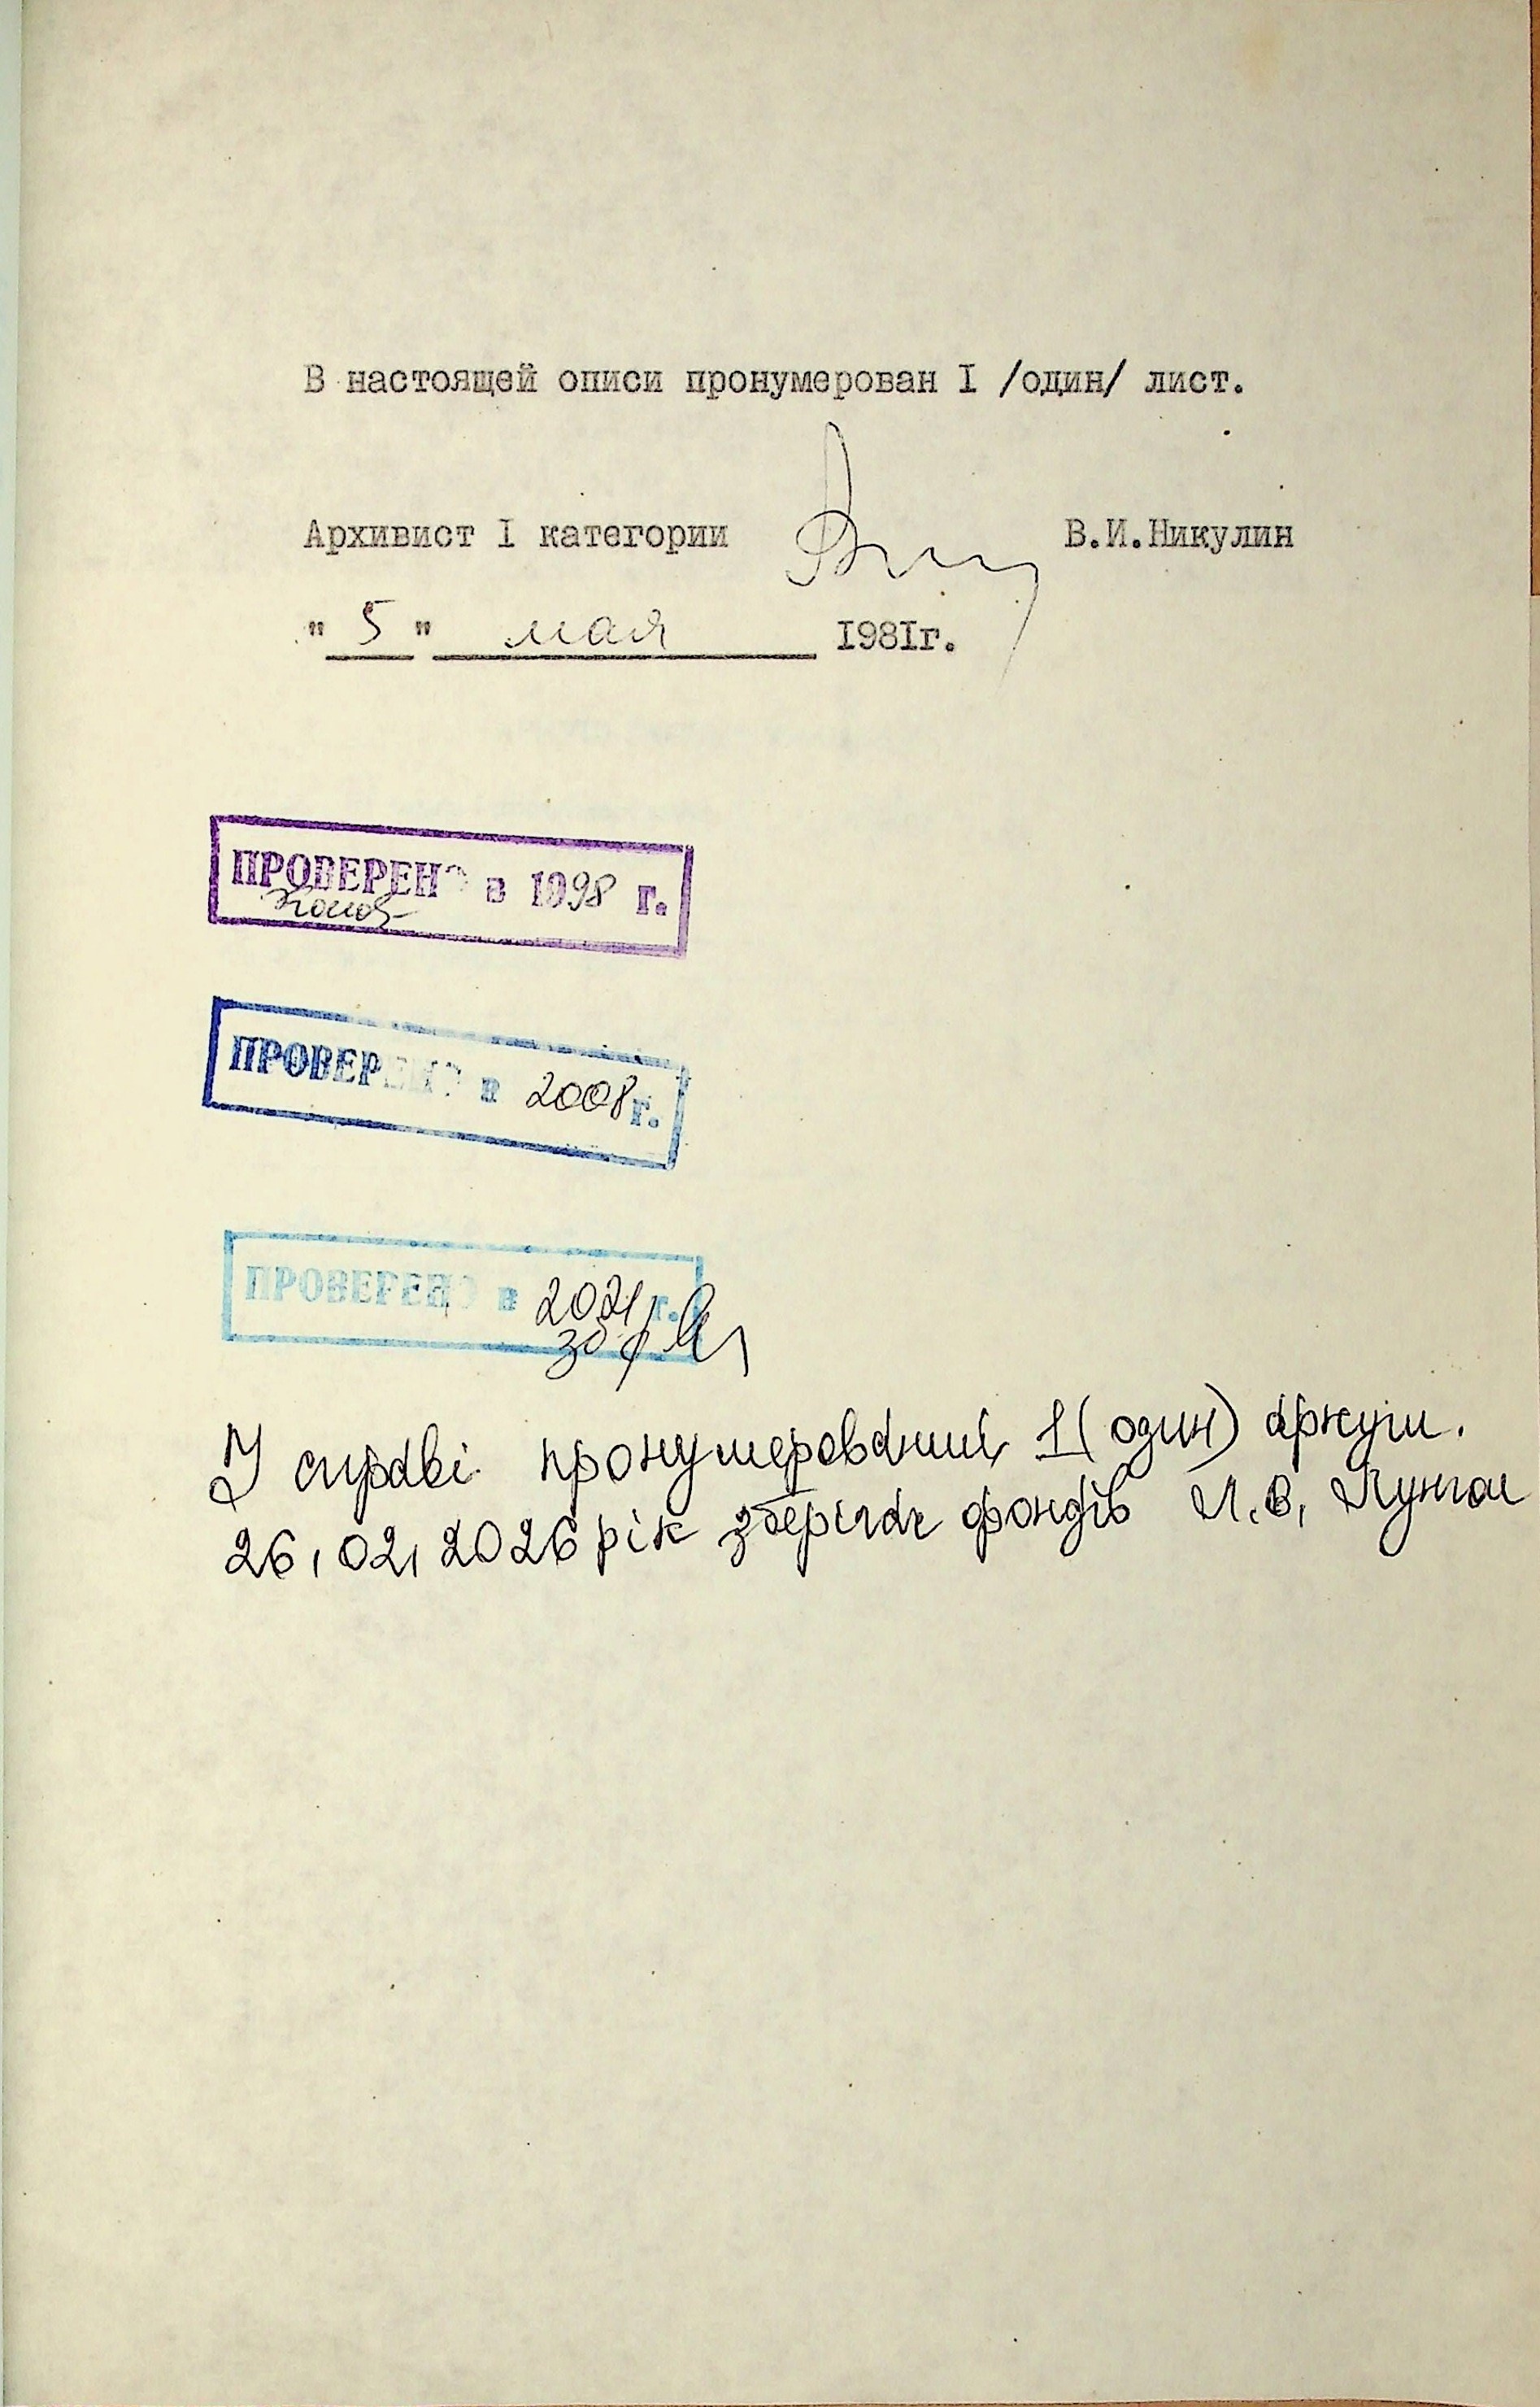 В настоящей описи пронумерован I /один/ лист.
Архивист I категории В.И.Никулин
"5" мая 1981г.
ПРОВЕРЕНО в 1998 г.
ПРОВЕРЕНО в 2008 г.
ПРОВЕРЕНО в 2021 г.
У справі пронумерований 1 (один) аркуш.
26.02.2026 рік зберігач фондів Л.В.